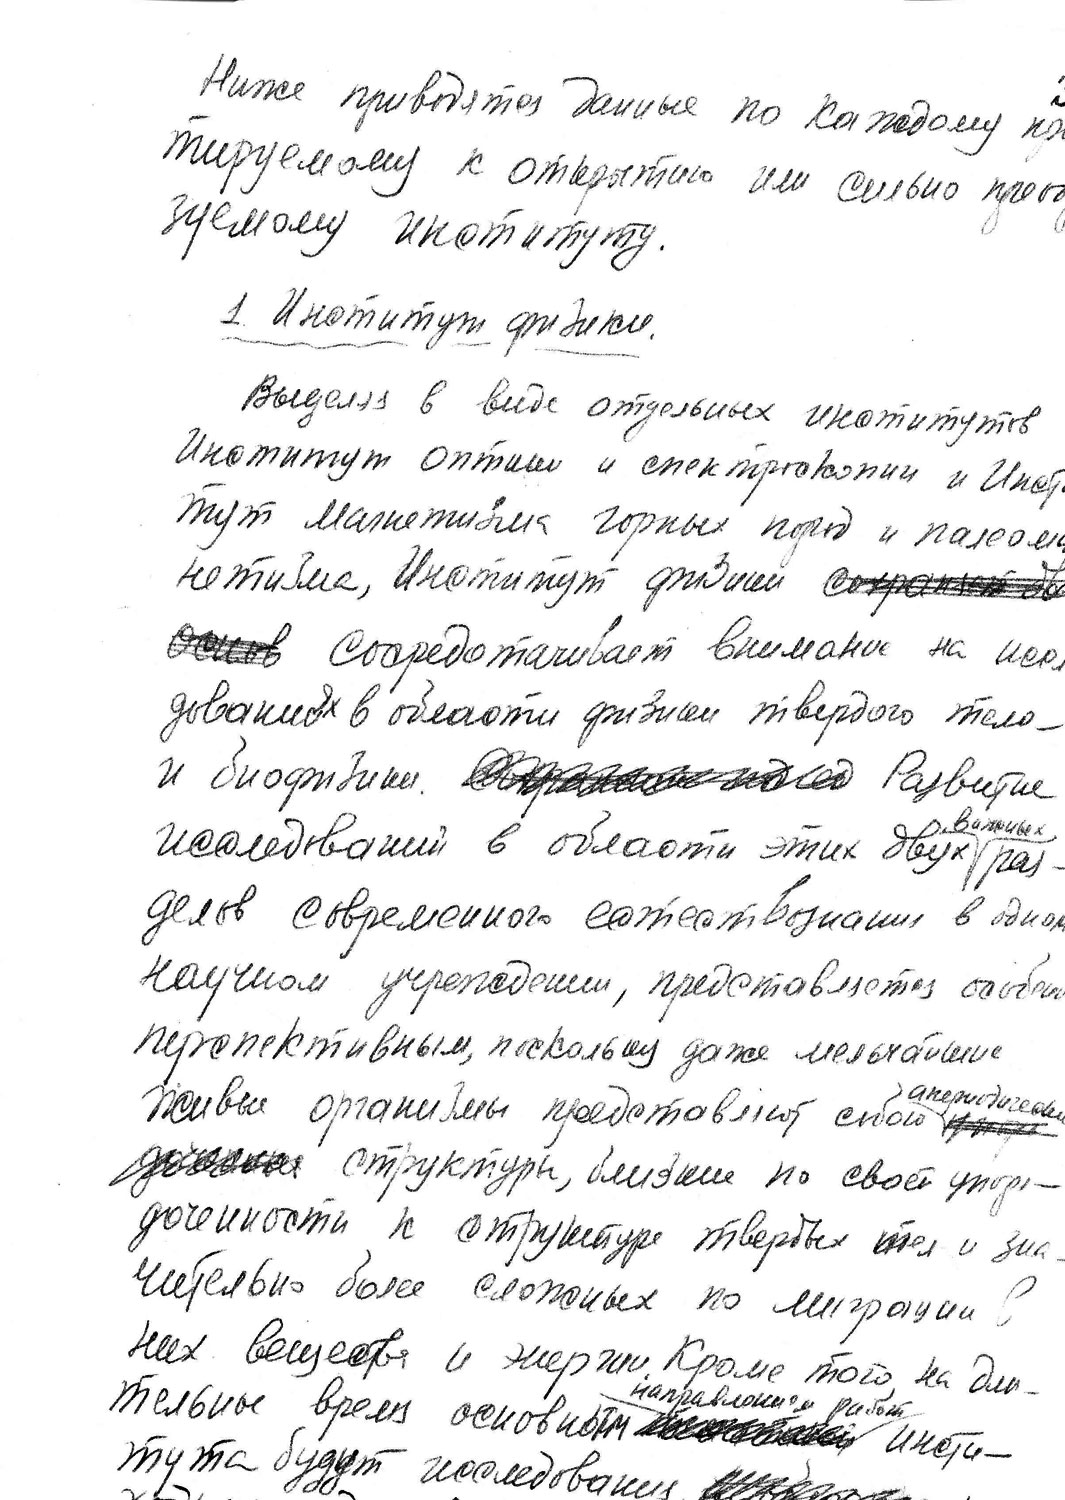 Ниже приводятся данные по каждому
тируемому к открытию или сильно преоб
зуемому институту.
1 Институт физики.
Выделяя в виде отдельных институтов
Институт оптики и спектроскопии и Инст
тут магнетизма горных пород и палеома
нетизма, Институт физики
сосредотачивает внимание на иссл
дованиях в области физики твердого тела
и биофизики. Развитие
исследований в области этих двух важных раз-
делов современного естествознания в одном
научном учреждении, представляется особенно
перспективным, поскольку даже мельчайшие
живые организмы представляют собой апериодические
структуры, близкие по своей упоря-
доченности к структуре твердых тел и зна-
чительно более сложных по миграции в
них вещества и энергии. Кроме того на дли-
тельные время основным направлением работ инсти-
тута будут исследования